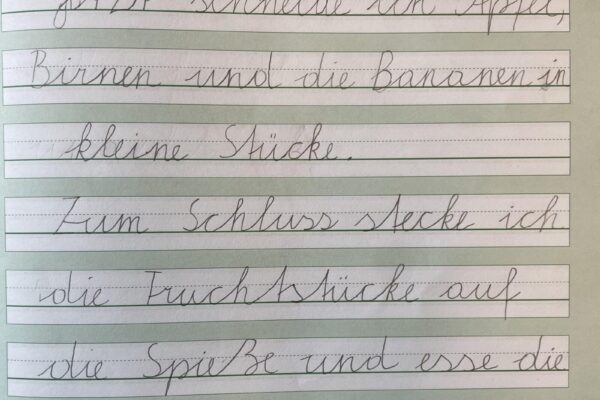 schneide ich Äpfel,
Birnen und die Bananen in
kleine Stücke.
Zum Schluss stecke ich
die Fruchtstücke auf
die Spieße und esse die